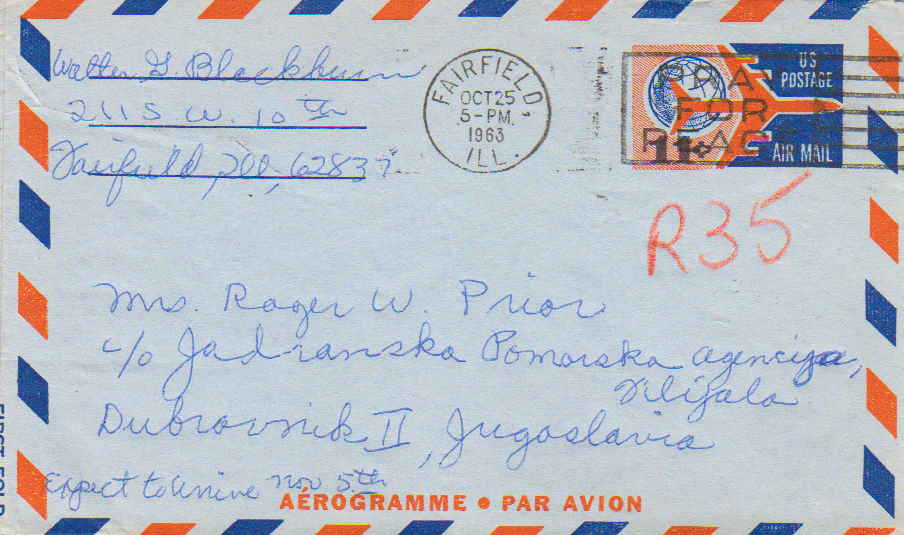 Walter G Blackburn
211 S W. 10th
Fairfield, Ill, 62837
FAIRFIELD,
OCT 25
5-PM.
1963
ILL.
PRAY
FOR
PEACE
U S
POSTAGE
11¢
AIR MAIL
R35
Mrs. Roger W. Prior
c/o Jadranska Pomorska agencija,
Filijala
Dubrovnik II, Jugoslavia
Expect to arrive Nov 5th
AÉROGRAMME • PAR AVION
FIRST FOLD